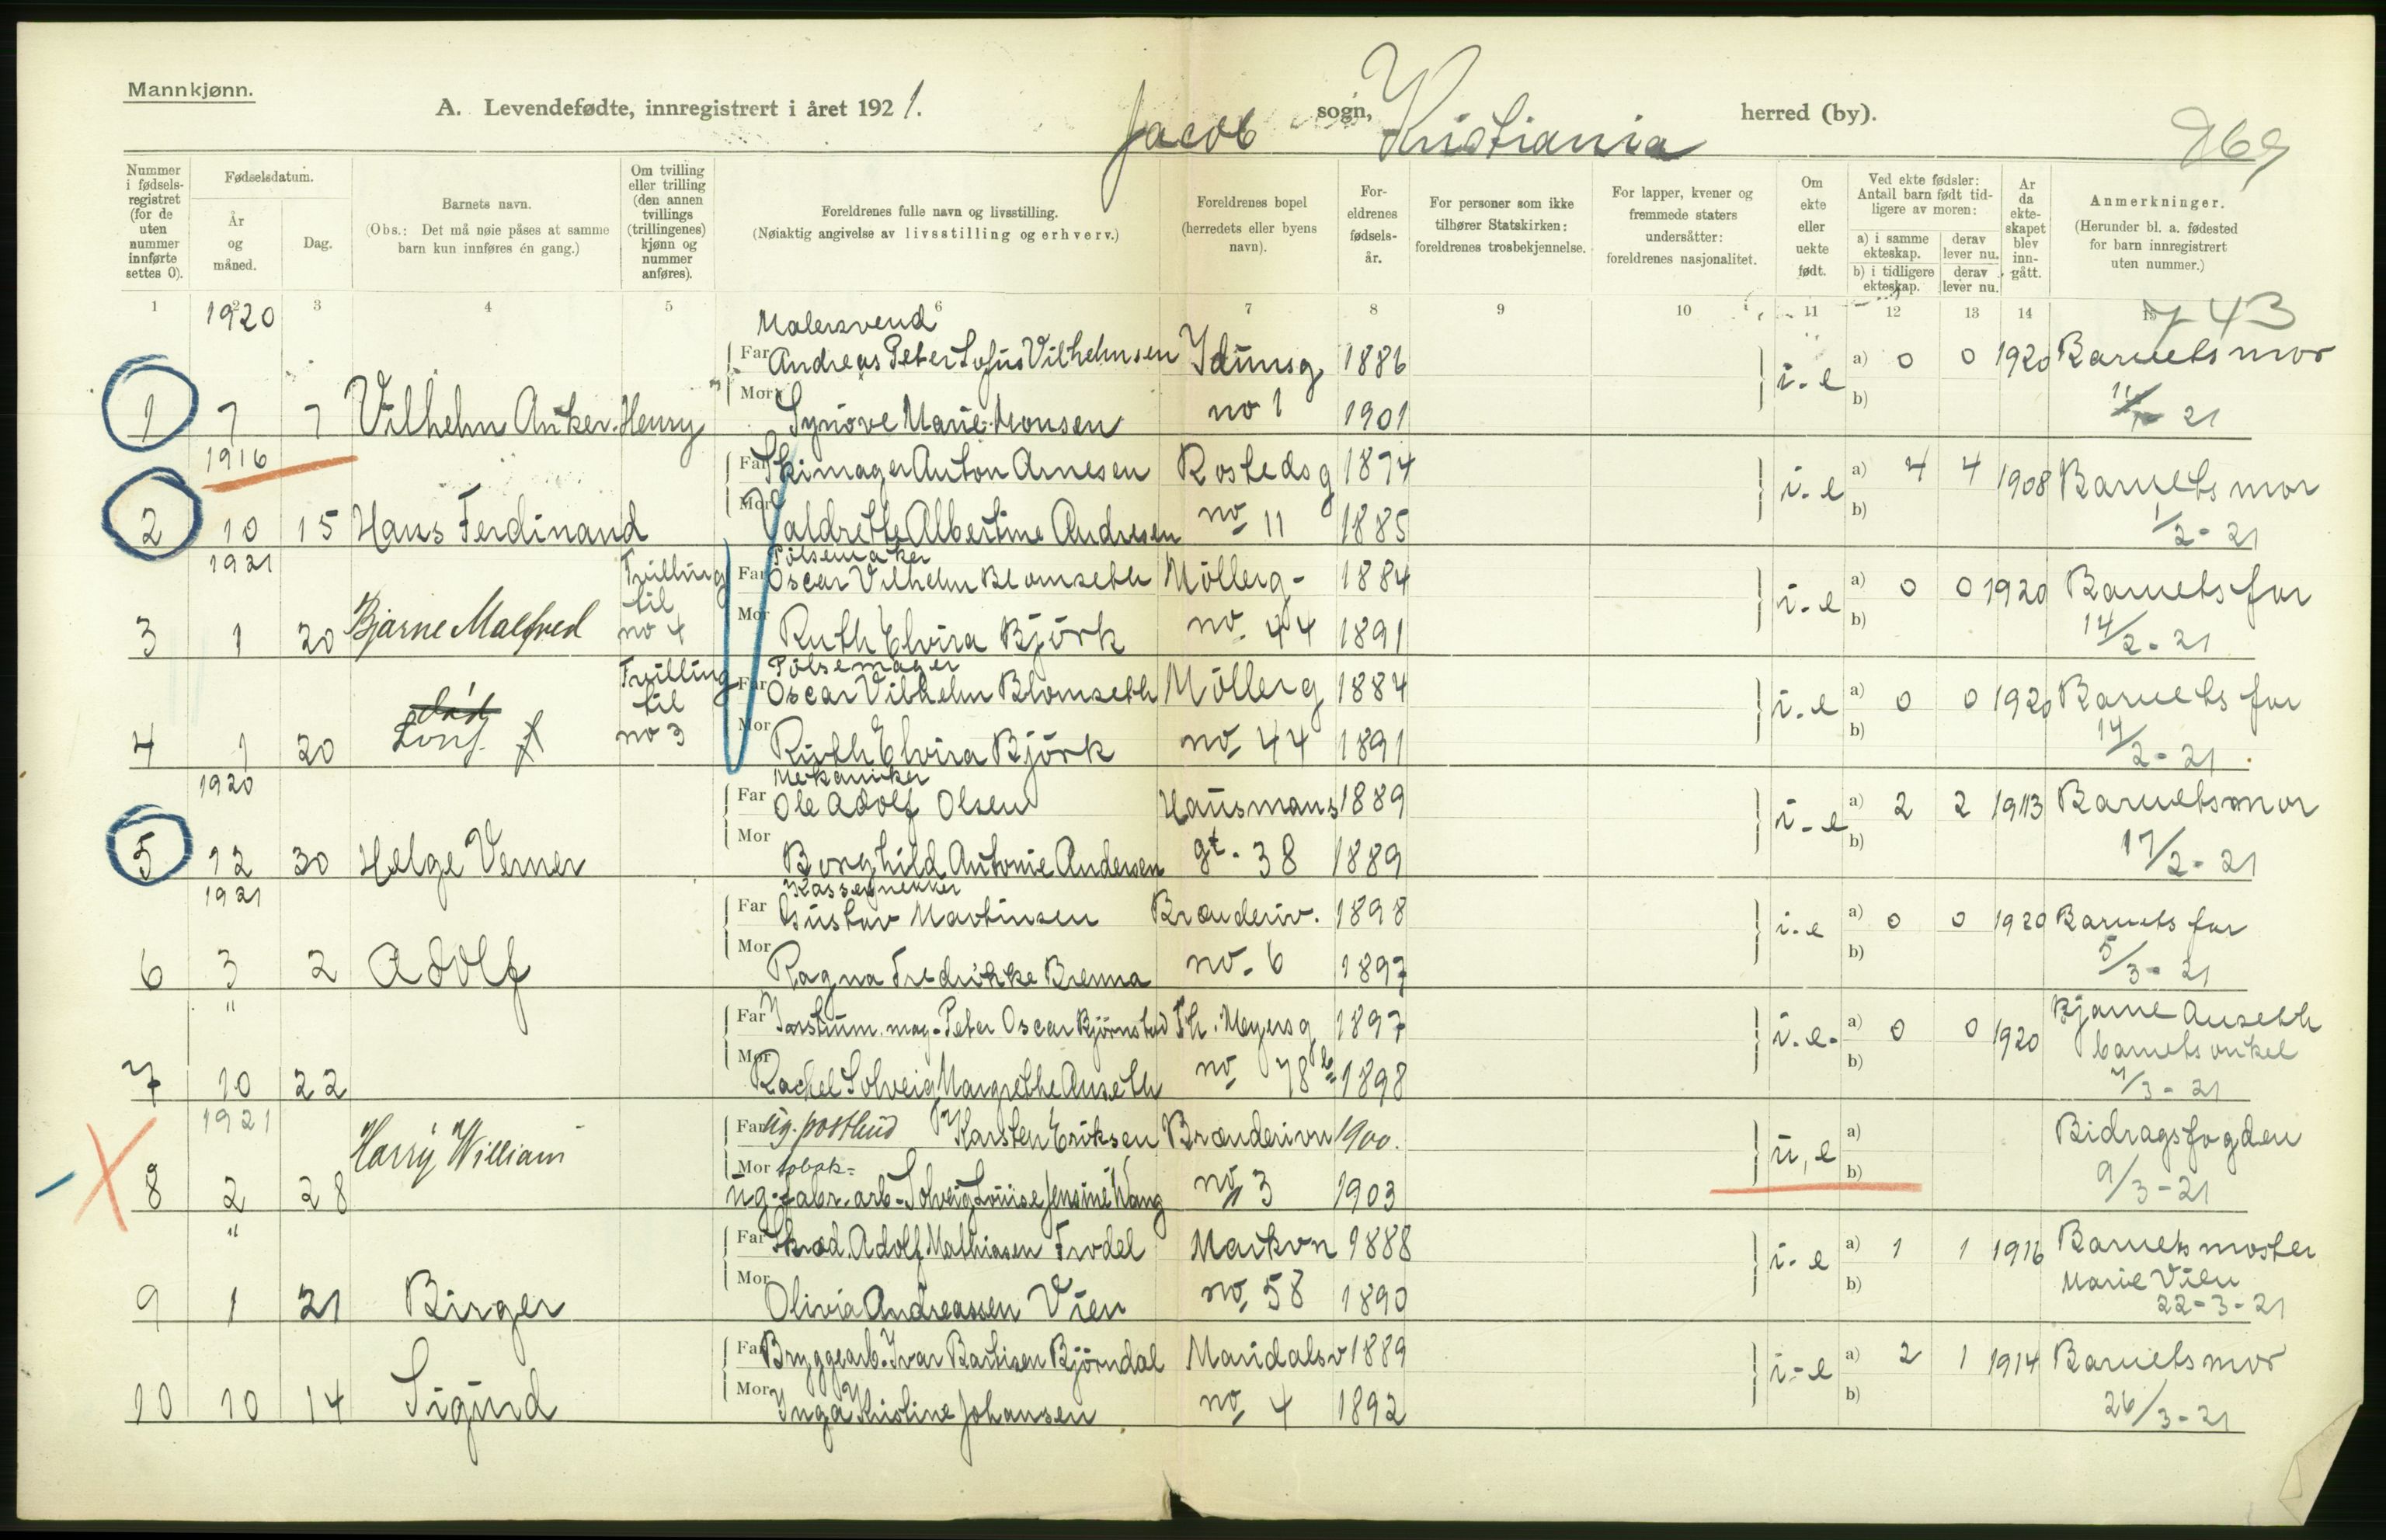 Mannkjønn.
A. Levendefødte, innregistrert i året 1921. Jacob sogn, Kristiania herred (by).
Nummer i fødsels-registret (for de uten nummer innførte settes 0).
Fødselsdatum.
År og måned.
Dag.
Barnets navn.
(Obs.: Det må nøie påses at samme barn kun innføres én gang.)
Om tvilling eller trilling (den annen tvillings (trillingenes) kjønn og nummer anføres).
Foreldrenes fulle navn og livsstilling.
(Nøiaktig angivelse av livsstilling og erhverv.)
Foreldrenes bopel (herredets eller byens navn).
For-eldrenes fødsels-år.
For personer som ikke tilhører Statskirken: foreldrenes trosbekjennelse.
For lapper, kvener og fremmede staters undersåtter: foreldrenes nasjonalitet.
Om ekte eller uekte født.
Ved ekte fødsler: Antall barn født tid-ligere av moren:
a) i samme ekteskap. derav lever nu.
b) i tidligere ekteskap. derav lever nu.
År da ekte-skapet blev inn-gått.
Anmerkninger.
(Herunder bl. a. fødested for barn innregistrert uten nummer.)
1 2 3 4 5 6 7 8 9 10 11 12 13 14
43
1920 Malersvend
Far Andreas Peter Sofus Vilhelmsen Idunsg 1886 i.e a) 0 0 1920 Barnets mor
1 7 7 Vilhelm Anker Henry Mor Synöve Marie Monsen no 1 1901 b) 21
1916 Far Skimager Anton Arnesen Rostedsg 1874 i.e a) 4 4 1908 Barnets mor
2 10 15 Hans Ferdinand Mor Valdrette Albertine Andresen no 11 1885 b) 1/2-21
1921 Tvilling til no 4 Pölsemaker
Far Oscar Vilhelm Blomseth Möllerg- 1884 i.e a) 0 0 1920 Barnets far
3 1 20 Bjarne Malfred Mor Ruth Elvira Björk no. 44 1891 b) 14/2-21
Tvilling til no 3 Pölsemager
Far Oscar Vilhelm Blomseth Möllerg 1884 i.e a) 0 0 1920 Barnets far
4 1 20 Mor Ruth Elvira Björk no 44 1891 b) 14/2-21
1920 Mekaniker
Far Ole Adolf Olsen Hausmans 1889 i-e a) 2 2 1913 Barnets mor
5 12 30 Helge Verner Mor Borghild Antonie Andersen gt. 38 1889 b) 17/2-21
1921 Kassesnekker
Far Gustav Martinsen Brænderiv. 1898 i.e a) 0 0 1920 Barnets far
6 3 2 Adolf Mor Ragna Fredrikke Brenna no. 6 1897 b) 5/3-21
" Far Peter Oscar Björnstad Th. Meyersg 1897 i.e- a) 0 0 1920 Bjarne Auseth
barnets onkel
7 10 22 Mor Rachel Solveig Margrethe Auseth no 78 b 1898 b) 7/3-21
1921 Far ug. postbud Karsten Eriksen Brænderivn 1900. u,e a) Bidragsfogden
8 2 28 Harry William Mor tobak-
ug. fabr. arb- Solveig Louise Jensine Wang no 3 1903 b) 9/3-21
" Far Skræd. Adolf Mathiasen Trodal Markvn 1888 i-e a) 1 1 1916 Barnets moster
Marie Vien
9 1 21 Birger Mor Olivia Andreassen Vien no 58 1890 b) 22-3-21
Far Bryggearb. Ivar Bartisen Björndal Maridalsv 1889 i-e a) 2 1 1914 Barnets mor
10 10 14 Sigurd Mor Inga Kristine Johansen no 4 1892 b) 26/3-21